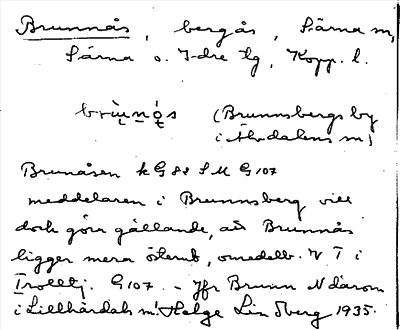 Brunnås, bergås, Särna sn,
Särna o. Idre tg, Kopp. l.
brùnǫ́s (Brunnsbergs by
i Älvdalens sn)
Brunåsen kG 88 S M G 107
meddelaren i Brunnsberg vill
dock göra gällande, att Brunnås
ligger mera österut, omedelb. V T i
Trolltj. G107. – Jfr Brunn N därom
i Lillhärdals sn! Helge Lindberg 1935.